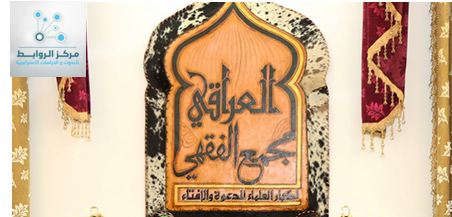 مركز الروابط
للبحوث و الدراسات الاستراتيجية
المجمع الفقهي
العراقي
لكبار العلماء للدعوة والافتاء